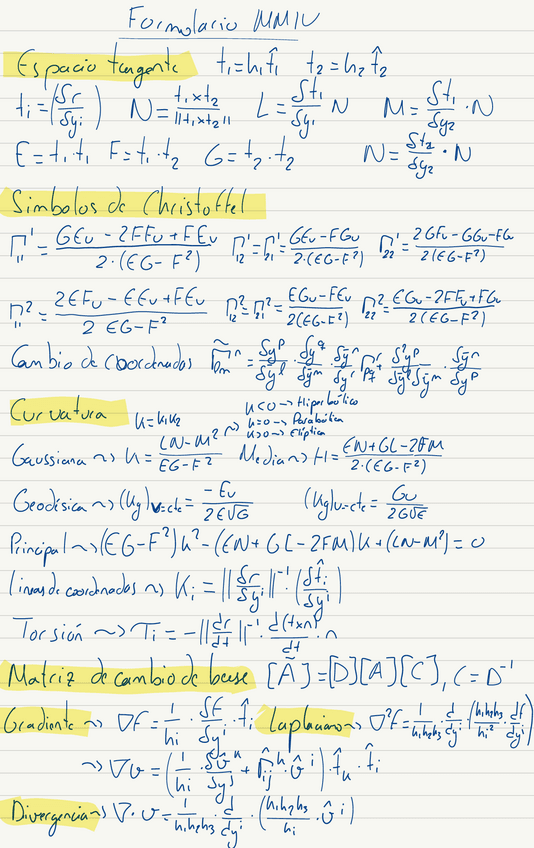 Formulario MMIV
Espacio tangente t₁=h₁t̂₁ t₂=h₂t̂₂
tᵢ=(δr/δyᵢ) N=t₁×t₂/||t₁×t₂|| L=δt₁/δy₁ N M=δt₁/δy₂·N
E=t₁·t₁ F=t₁·t₂ G=t₂·t₂ N=δt₂/δy₂·N
Simbolos de Christoffel
Γ₁₁¹=(GEu-2FFu+FEv)/(2·(EG-F²)) Γ₁₂¹=Γ₂₁¹=(GEv-FGu)/(2·(EG-F²)) Γ₂₂¹=(2GFv-GGu-FGv)/(2(EG-F²))
Γ₁₁²=(2EFu-EEv+FEu)/(2 EG-F²) Γ₁₂²=Γ₂₁²=(EGu-FEv)/(2(EG-F²)) Γ₂₂²=(EGv-2FFv+FGu)/(2(EG-F²))
Cambio de coordenadas Γ̃ₗₘⁿ=δyᵖ/δỹˡ·δy^q/δỹᵐ·δỹⁿ/δyʳ Γ_pqʳ + δ²yᵖ/δỹˡδỹᵐ·δỹⁿ/δyᵖ
Curvatura K=K₁K₂
K<0→Hiperbólico
K=0→Parabólica
K>0→Elíptica
Gaussiana ~> K=(LN-M²)/(EG-F²) Media ~> H=(EN+GL-2FM)/(2·(EG-F²))
Geodésica ~> (Kg)v=cte=-Ev/(2E√G) (Kg)u=cte=Gu/(2G√E)
Principal ~> (EG-F²)k²-(EN+GL-2FM)K+(LN-M²)=0
Lineas de coordenadas ~> Kᵢ=||δr/δyⁱ||⁻¹(δt̂ᵢ/δyⁱ)
Torsión ~> τᵢ=-||dr/dt||⁻¹·d(t×n)/dt·n
Matriz de cambio de base [Ã]=[D][A][C], C=D⁻¹
Gradiente ~> ∇f=1/hᵢ·δf/δyⁱ·t̂ᵢ Laplaciano ~> ∇²f=1/h₁h₂h₃·d/dyⁱ(h₁h₂h₃/hᵢ²·df/dyⁱ)
~> ∇v=(1/hᵢ·δv̂ᵏ/δyʲ+Γ̂ᵢⱼᵏ·v̂ⁱ)·t̂ₖ·t̂ᵢ
Divergencia ~> ∇·v=1/h₁h₂h₃·d/dyⁱ·(h₁h₂h₃/hᵢ·v̂ⁱ)